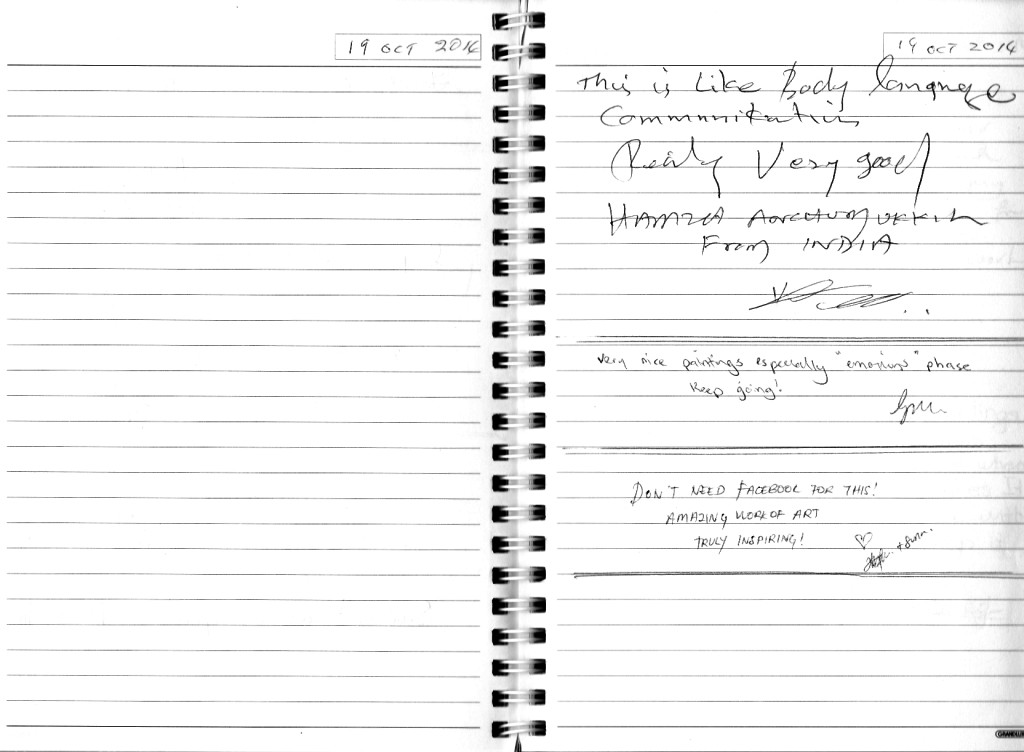 19 OCT 2014
19 OCT 2014
This is Like Body language
Communikation
Really Very good
HAMZA
From INDIA
very nice paintings especially "emotions" phase
Keep going!
DON'T NEED FACEBOOK FOR THIS!
AMAZING WORK OF ART
TRULY INSPIRING!